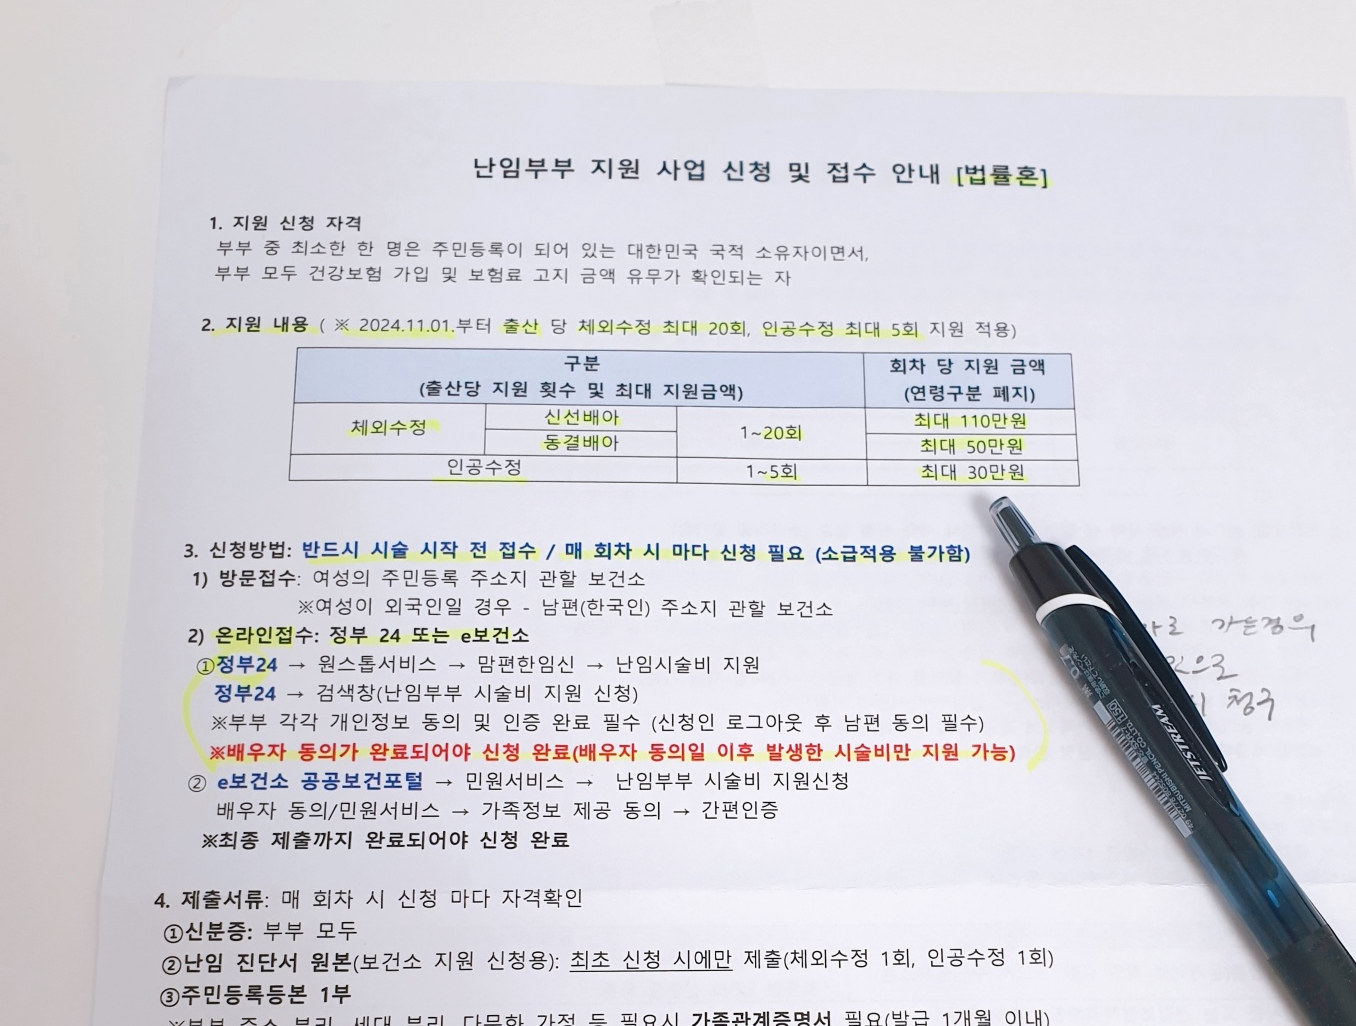 난임부부 지원 사업 신청 및 접수 안내 [법률혼]
1. 지원 신청 자격
부부 중 최소한 한 명은 주민등록이 되어 있는 대한민국 국적 소유자이면서,
부부 모두 건강보험 가입 및 보험료 고지 금액 유무가 확인되는 자
2. 지원 내용 ( ※ 2024.11.01.부터 출산 당 체외수정 최대 20회, 인공수정 최대 5회 지원 적용)
구분 회차 당 지원 금액
(출산당 지원 횟수 및 최대 지원금액) (연령구분 폐지)
체외수정 신선배아 1~20회 최대 110만원
동결배아 최대 50만원
인공수정 1~5회 최대 30만원
3. 신청방법: 반드시 시술 시작 전 접수 / 매 회차 시 마다 신청 필요 (소급적용 불가함)
1) 방문접수: 여성의 주민등록 주소지 관할 보건소
※여성이 외국인일 경우 - 남편(한국인) 주소지 관할 보건소
2) 온라인접수: 정부 24 또는 e보건소
①정부24 → 원스톱서비스 → 맘편한임신 → 난임시술비 지원
정부24 → 검색창(난임부부 시술비 지원 신청)
※부부 각각 개인정보 동의 및 인증 완료 필수 (신청인 로그아웃 후 남편 동의 필수)
※배우자 동의가 완료되어야 신청 완료(배우자 동의일 이후 발생한 시술비만 지원 가능)
② e보건소 공공보건포털 → 민원서비스 → 난임부부 시술비 지원신청
배우자 동의/민원서비스 → 가족정보 제공 동의 → 간편인증
※최종 제출까지 완료되어야 신청 완료
4. 제출서류: 매 회차 시 신청 마다 자격확인
①신분증: 부부 모두
②난임 진단서 원본(보건소 지원 신청용): 최초 신청 시에만 제출(체외수정 1회, 인공수정 1회)
③주민등록등본 1부
※부부 주소 분리, 세대 분리, 다문화 가정 등 필요시 가족관계증명서 필요(발급 1개월 이내)
청구
JETSTREAM
MITSUBISHI PENCIL CO.,LTD.
0.7